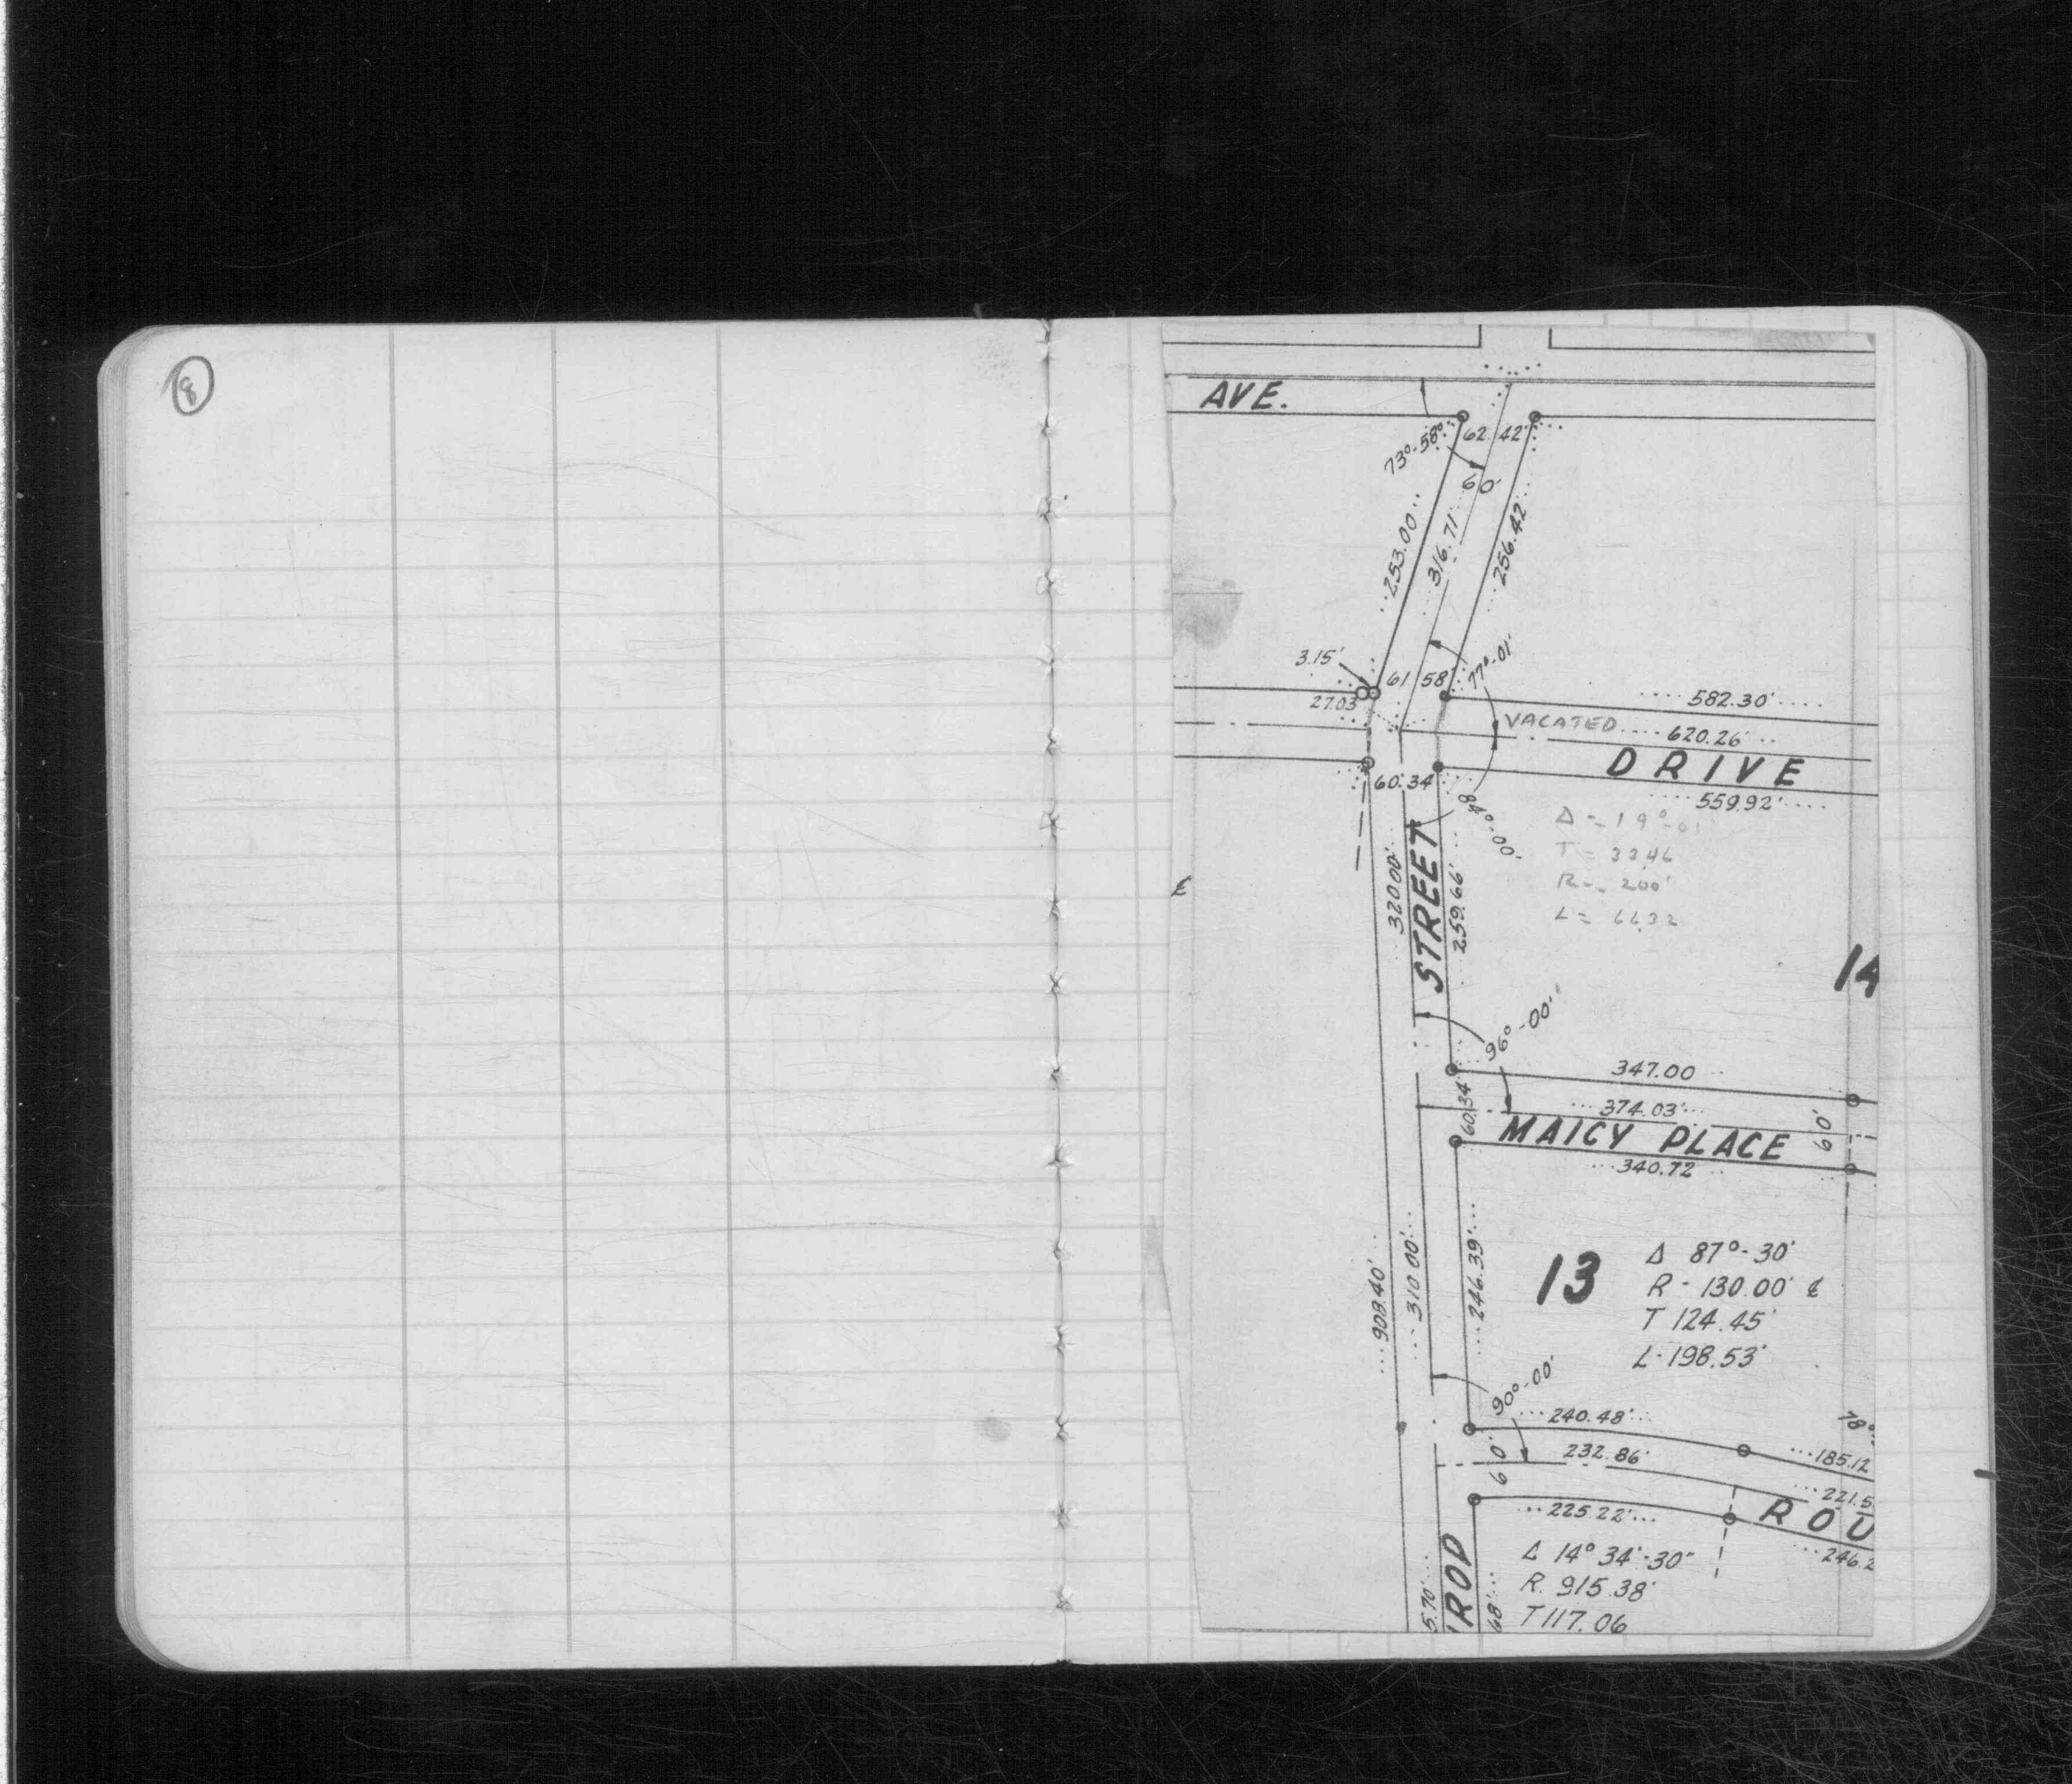 8
AVE.
73°-58'
62.42'
60'
253.00'
316.71'
256.42'
3.15'
61.58'
77°-01'
27.03
582.30'
VACATED
620.26'
DRIVE
60.34
559.92'
Δ = 19°-01'
T = 33.46
R = 200'
L = 66.32
320.00'
STREET
259.66'
14
96°-00'
347.00
60.34'
374.03'
60'
MAICY PLACE
340.72
908.40'
310.00'
246.39'
13
Δ 87°-30'
R - 130.00' ℄
T 124.45'
L - 198.53'
90°-00'
240.48'
78°
232.86'
185.12
60'
221.5
225.22'
ROU
246.2
Δ 14° 34'-30"
R. 915.38'
T 117.06
5.70'
ROD
68'